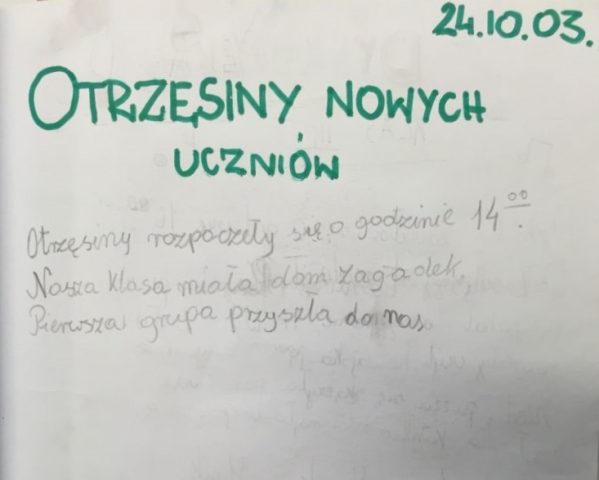 24.10.03.
OTRZĘSINY NOWYCH
UCZNIÓW
Otrzęsiny rozpoczęły się o godzinie 14⁰⁰.
Nasza klasa miała dom zagadek.
Pierwsza grupa przyszła do nas